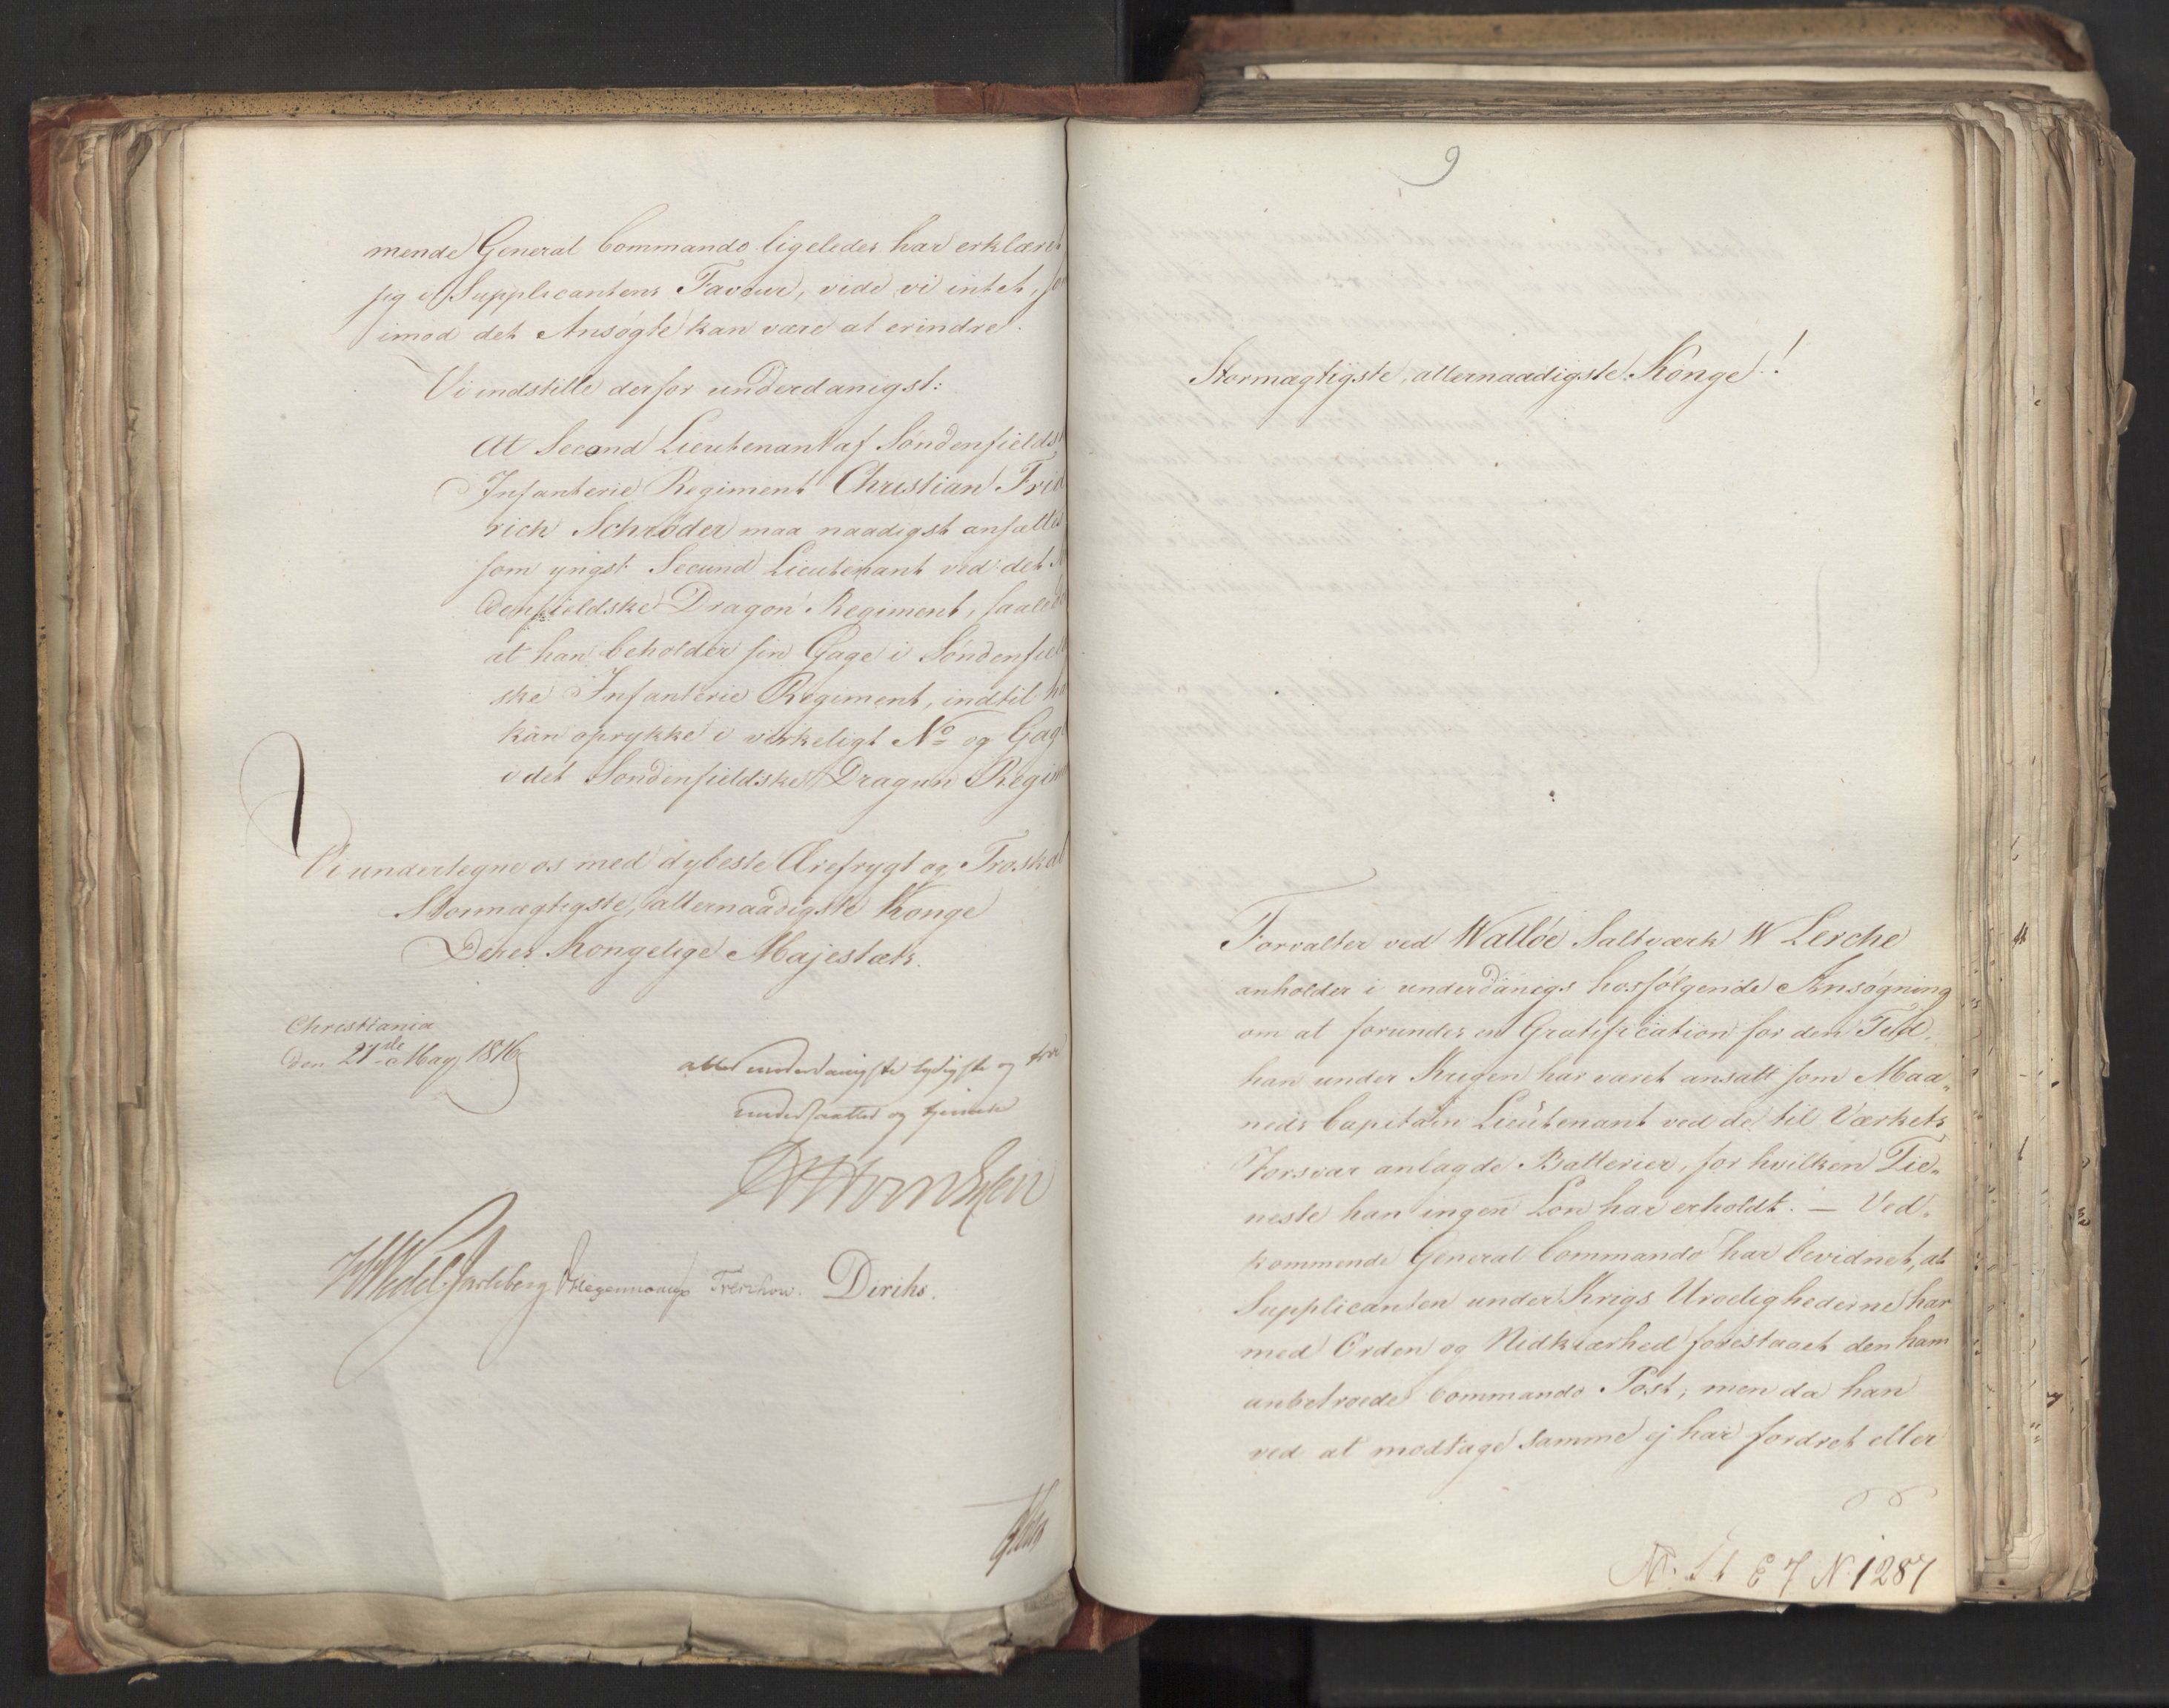 mende General Commando ligeledes har erklæret
sig i Supplicantens Faveur, vide vi intet, som
imod det Ansøgte kan være at erindre.
Vi indstille derfor underdanigst:
At Second Lieutenant af Søndenfieldske
Infanterie Regiment Christian Frid
rich Schrøder maa naadigst ansættes
som yngst Secund Lieutenant ved det
denfieldske Dragon Regiment, saaledes
at han beholder sin Gage i Søndenfield
ske Infanterie Regiment, indtil han
kan oprykke i virkeligt No og Gage
i det Søndenfieldske Dragun Regim
Vi undertegne os med dybeste Ærefrygt og Troskab
Stormægtigste, allernaadigste Konge
Deres Kongelige Majestæts.
Christiania
den 27de May 1816
allerunderdanigste lydigste og troe
undersaatter og tjenere
Wedel Jarlsberg Hegermann Treschow. Diriks.
9
Stormægtigste, allernaadigste Konge!
Forvalter ved Walløe Saltværk W Lerche
anholder i underdanigs hosfølgende Ansøgning
om at forundes en Gratification for den Tid
han under Krigen har været ansatt som Maa„
neds Capitain Lieutenant ved de til Værkets
Forsvar anlagde Batterier, for hvilken Tie„
neste han ingen Løn har erholdt. — Ved„
kommende General Commando har bevidnet, at
Supplicanten under Krigs Uroelighederne har
med Orden og Nidkiærhed forestaaet den ham
anbetroede Commando Post; men da han
ved at modtage samme ej har fordret eller
N. 1287